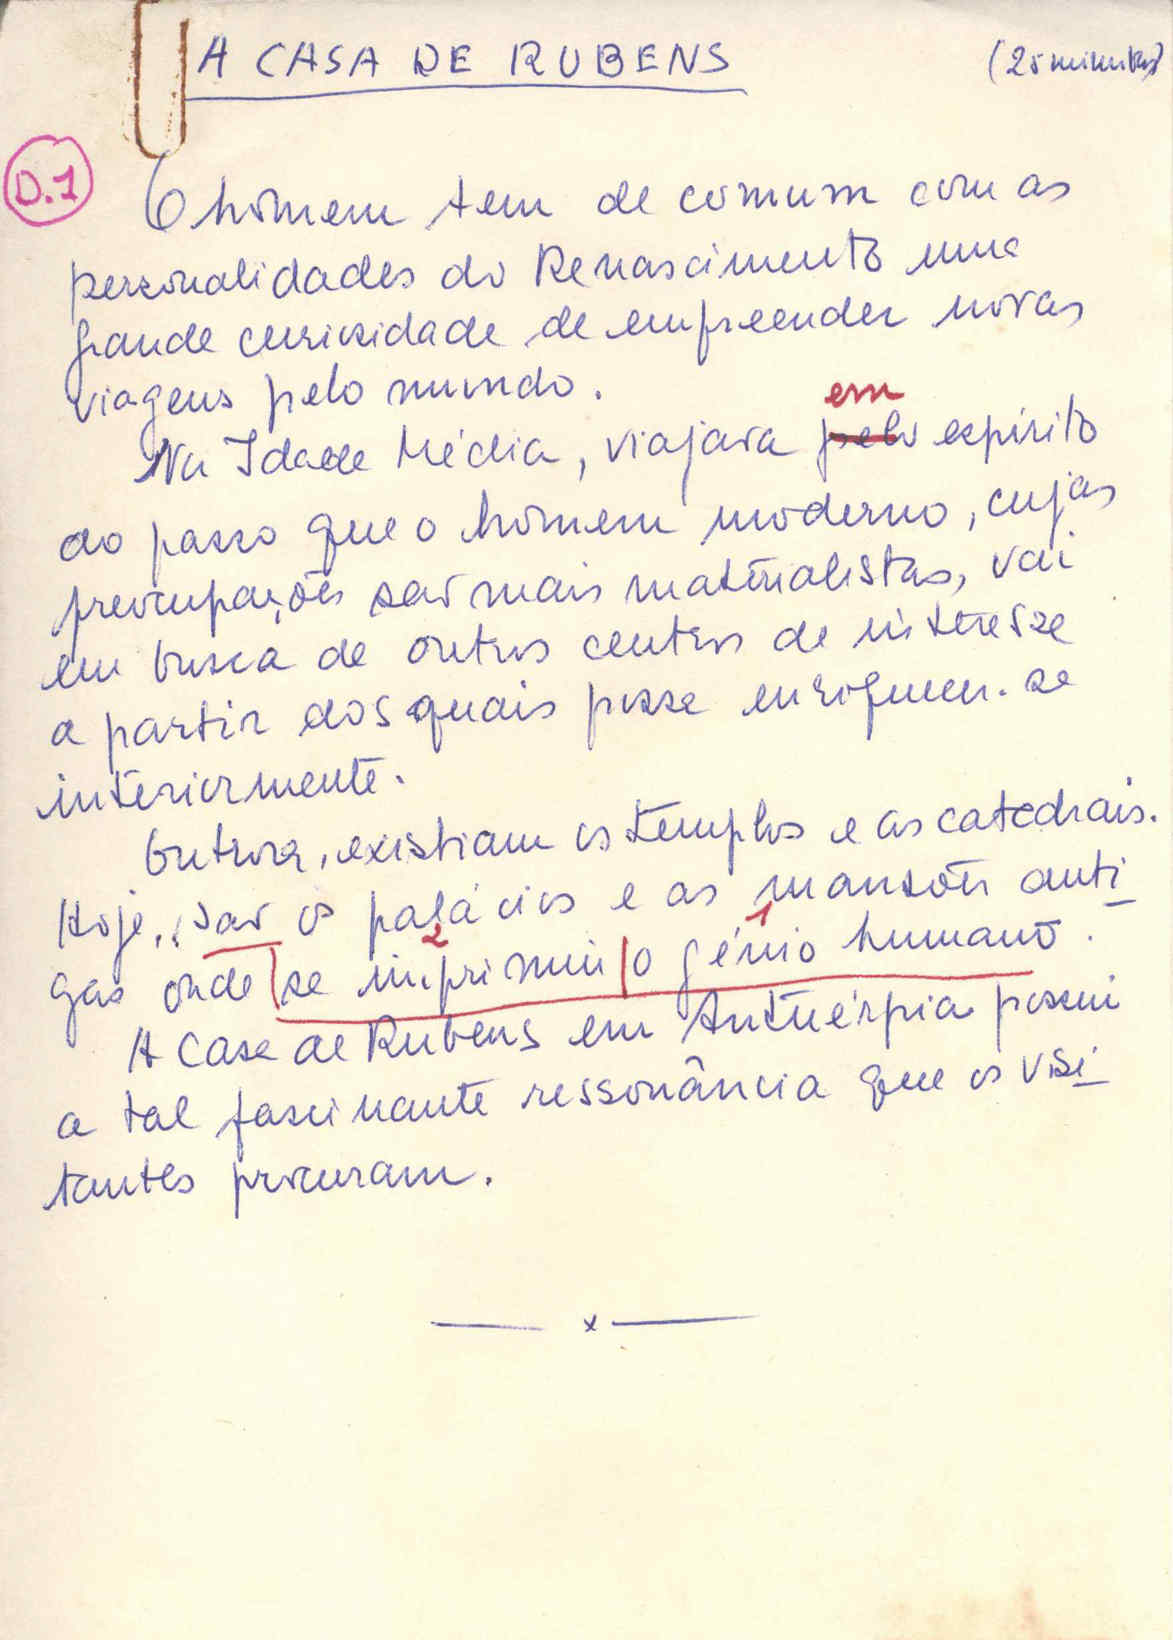 A CASA DE RUBENS (25 minutos)
D.1
O homem tem de comum com as
personalidades do Renascimento uma
grande curiosidade de empreender novas
viagens pelo mundo.
em
Na Idade Média, viajava pelo espírito
ao passo que o homem moderno, cujas
preocupações são mais materialistas, vai
em busca de outros centros de interesse
a partir dos quais possa enriquecer-se
interiormente.
Outrora, existiam os templos e as catedrais.
Hoje, são os palácios e as mansões anti
2 1
gas onde se imprimiu o génio humano.
A Casa de Rubens em Antuérpia possui
a tal fascinante ressonância que os visi
tantes procuram.
x